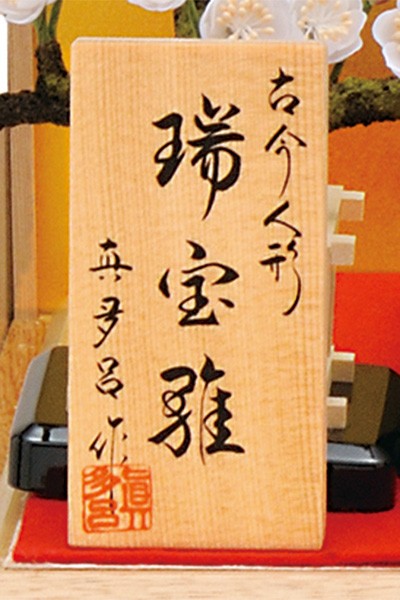 古今人形
瑞宝雅
真多呂作
眞多呂